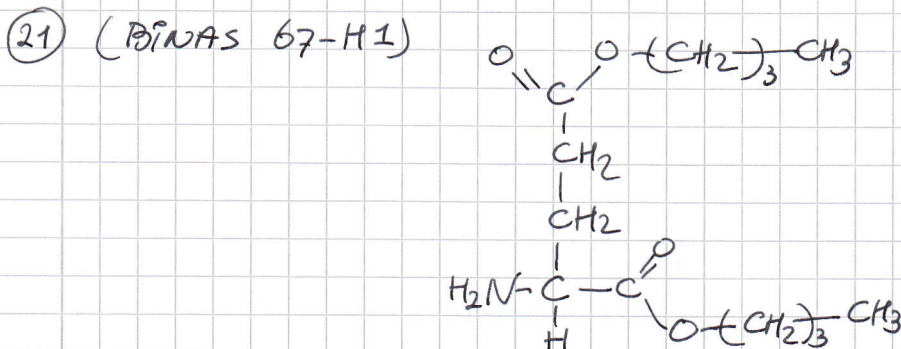 21 (BiNAS 67-H1)
O O-(CH2)3-CH3
C
CH2
CH2
O
H2N-C-C
H O-(CH2)3-CH3